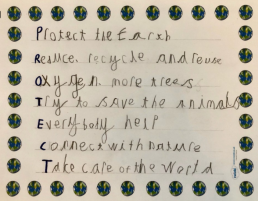 Protect the Earth
Reduce, recycle and reuse
Oxygen more trees
Try to save the animals
Everybody help
Connect with nature
Take care of the World